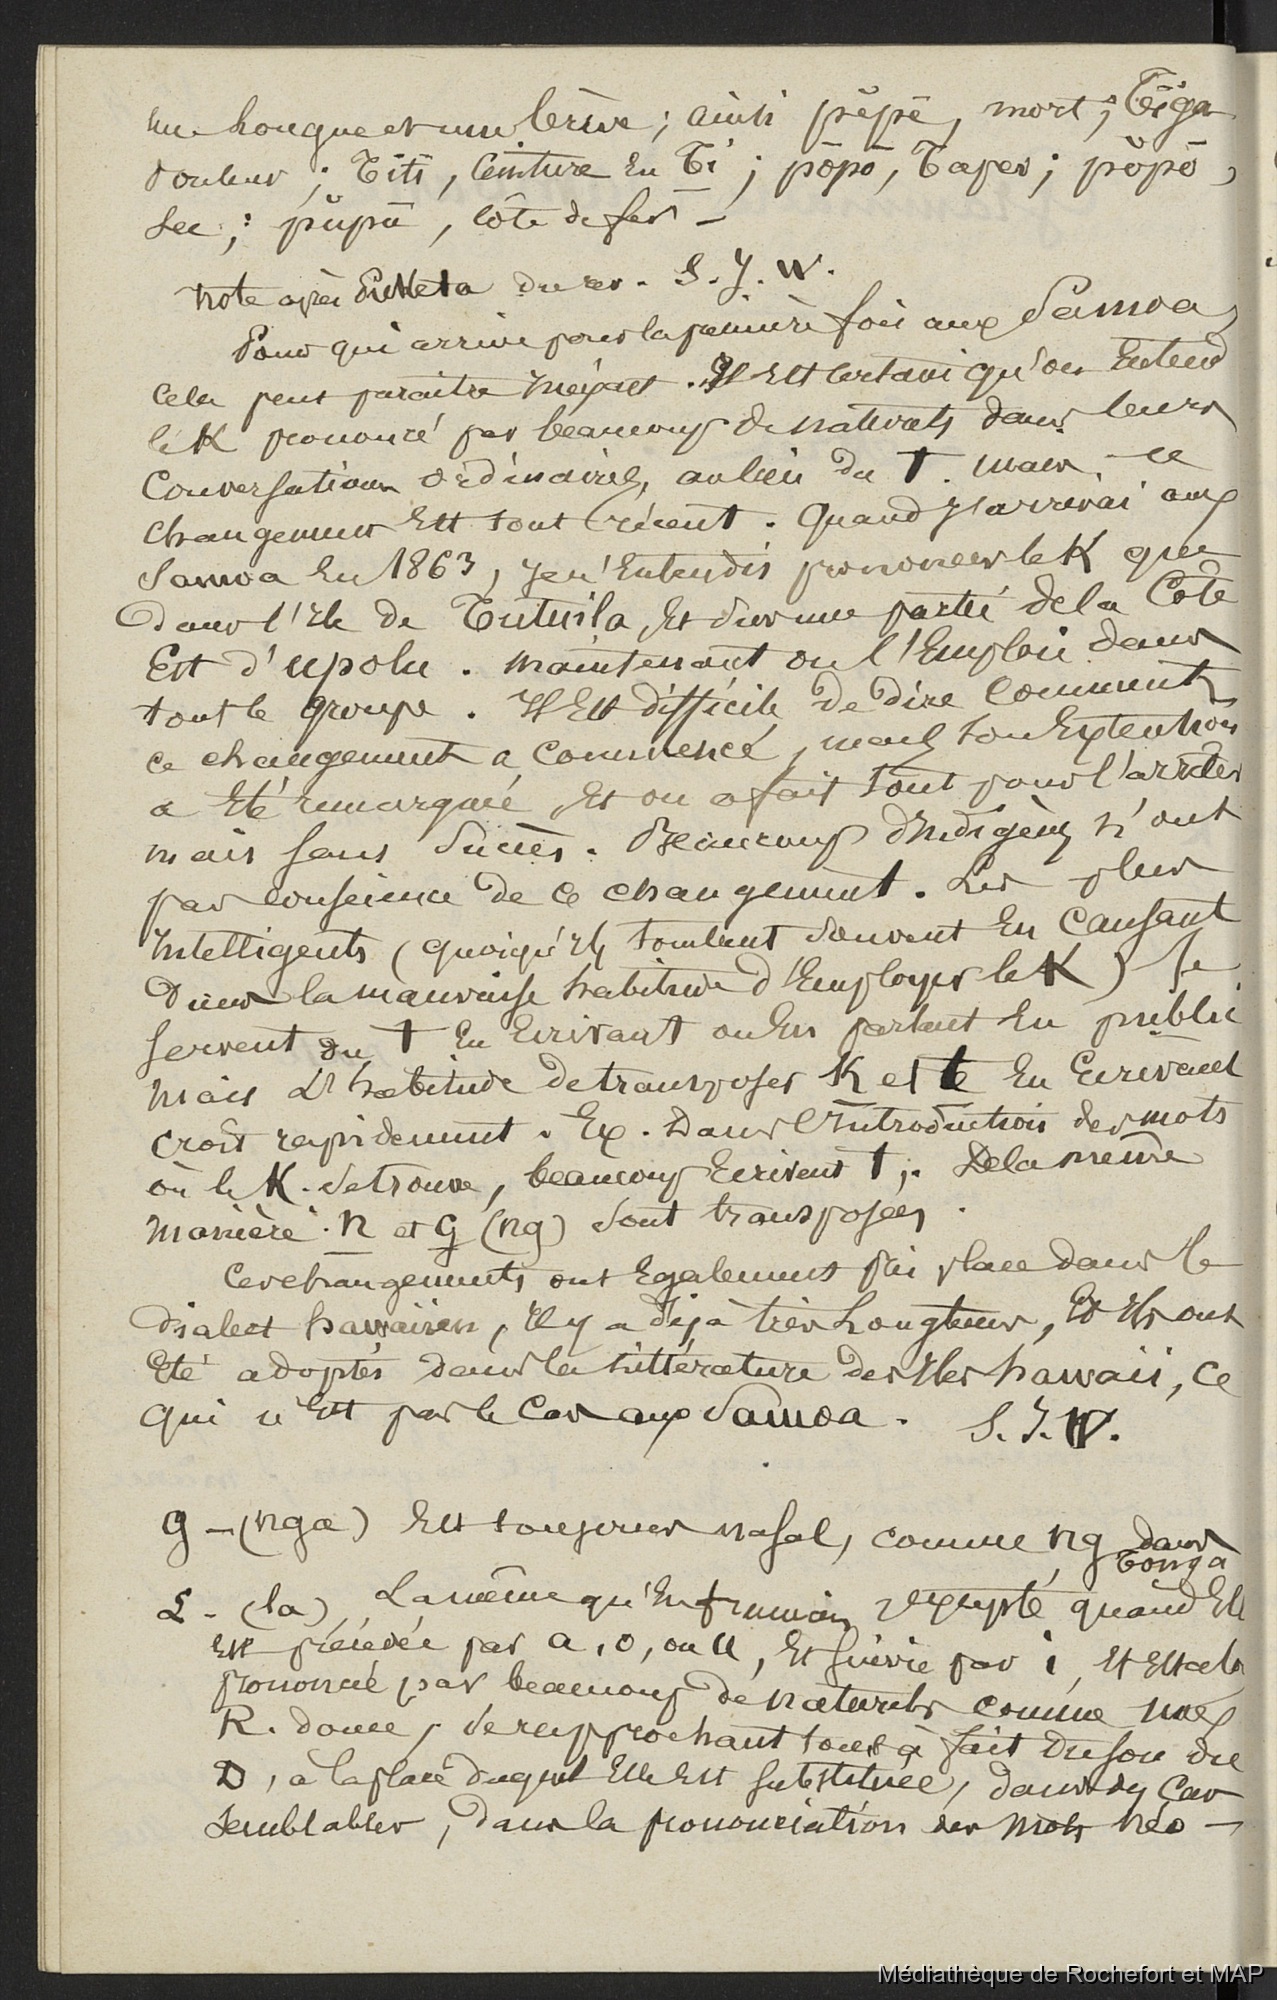 une longue et une brève ; ainsi pĕpē, mort ; Tĕiga
douleur ; Tĭtī, Ceinture en Ti ; pōpō, Taper ; pŏpō,
sec ; pŭpū, côte de fer —
note après du rev. S. J. W.
Pour qui arrive pour la première fois aux Samoa,
Cela peut paraître inexact. Il est certain qu'on entend
le K prononcé par beaucoup de naturels dans leurs
Conversations ordinaires, au lieu du T. mais ce
changement est tout récent. Quand j'arrivai aux
Samoa en 1863, je n'entendis prononcer le K que
dans l'île de Tutuila, et sur une partie de la Côte
Est d'upolu. Maintenant on l'emploie dans
tout le groupe. Il est difficile de dire comment
ce changement a commencé, mais son extention
a été remarquée, et on a fait tout pour l'arrêter
mais sans succès. Beaucoup d'indigènes n'ont
pas conscience de ce changement. Les plus
intelligents (quoiqu'ils tombent souvent en causant
dans la mauvaise habitude d'employer le K) se
servent du T en écrivant ou en parlant en public
mais l'habitude de transposer K et t en écrivant
croît rapidement. Ex. Dans l'introduction des mots
où le K. se trouve, beaucoup écrivent T ;. De la même
manière. N et G (ng) sont transposés.
Ces changements ont également pris place dans le
dialect hawaiien, il y a déjà très longtems, et ils ont
été adoptés dans la littérature des îles hawaii, ce
qui n'est pas le cas aux Samoa. S. J. W.
g — (nga) est toujours nasal, comme ng dans
Tonga
L - (la) La même qu'en français, excepté quand elle
est précédée par a, o, ou u, et suivie par i, et est alors
prononcé par beaucoup de naturels comme une
R. douce, se rapprochant tout à fait du son du
D, à la place duquel elle est substituée, dans des cas
semblables, dans la prononciation des mots néo -
Médiathèque de Rochefort et MAP